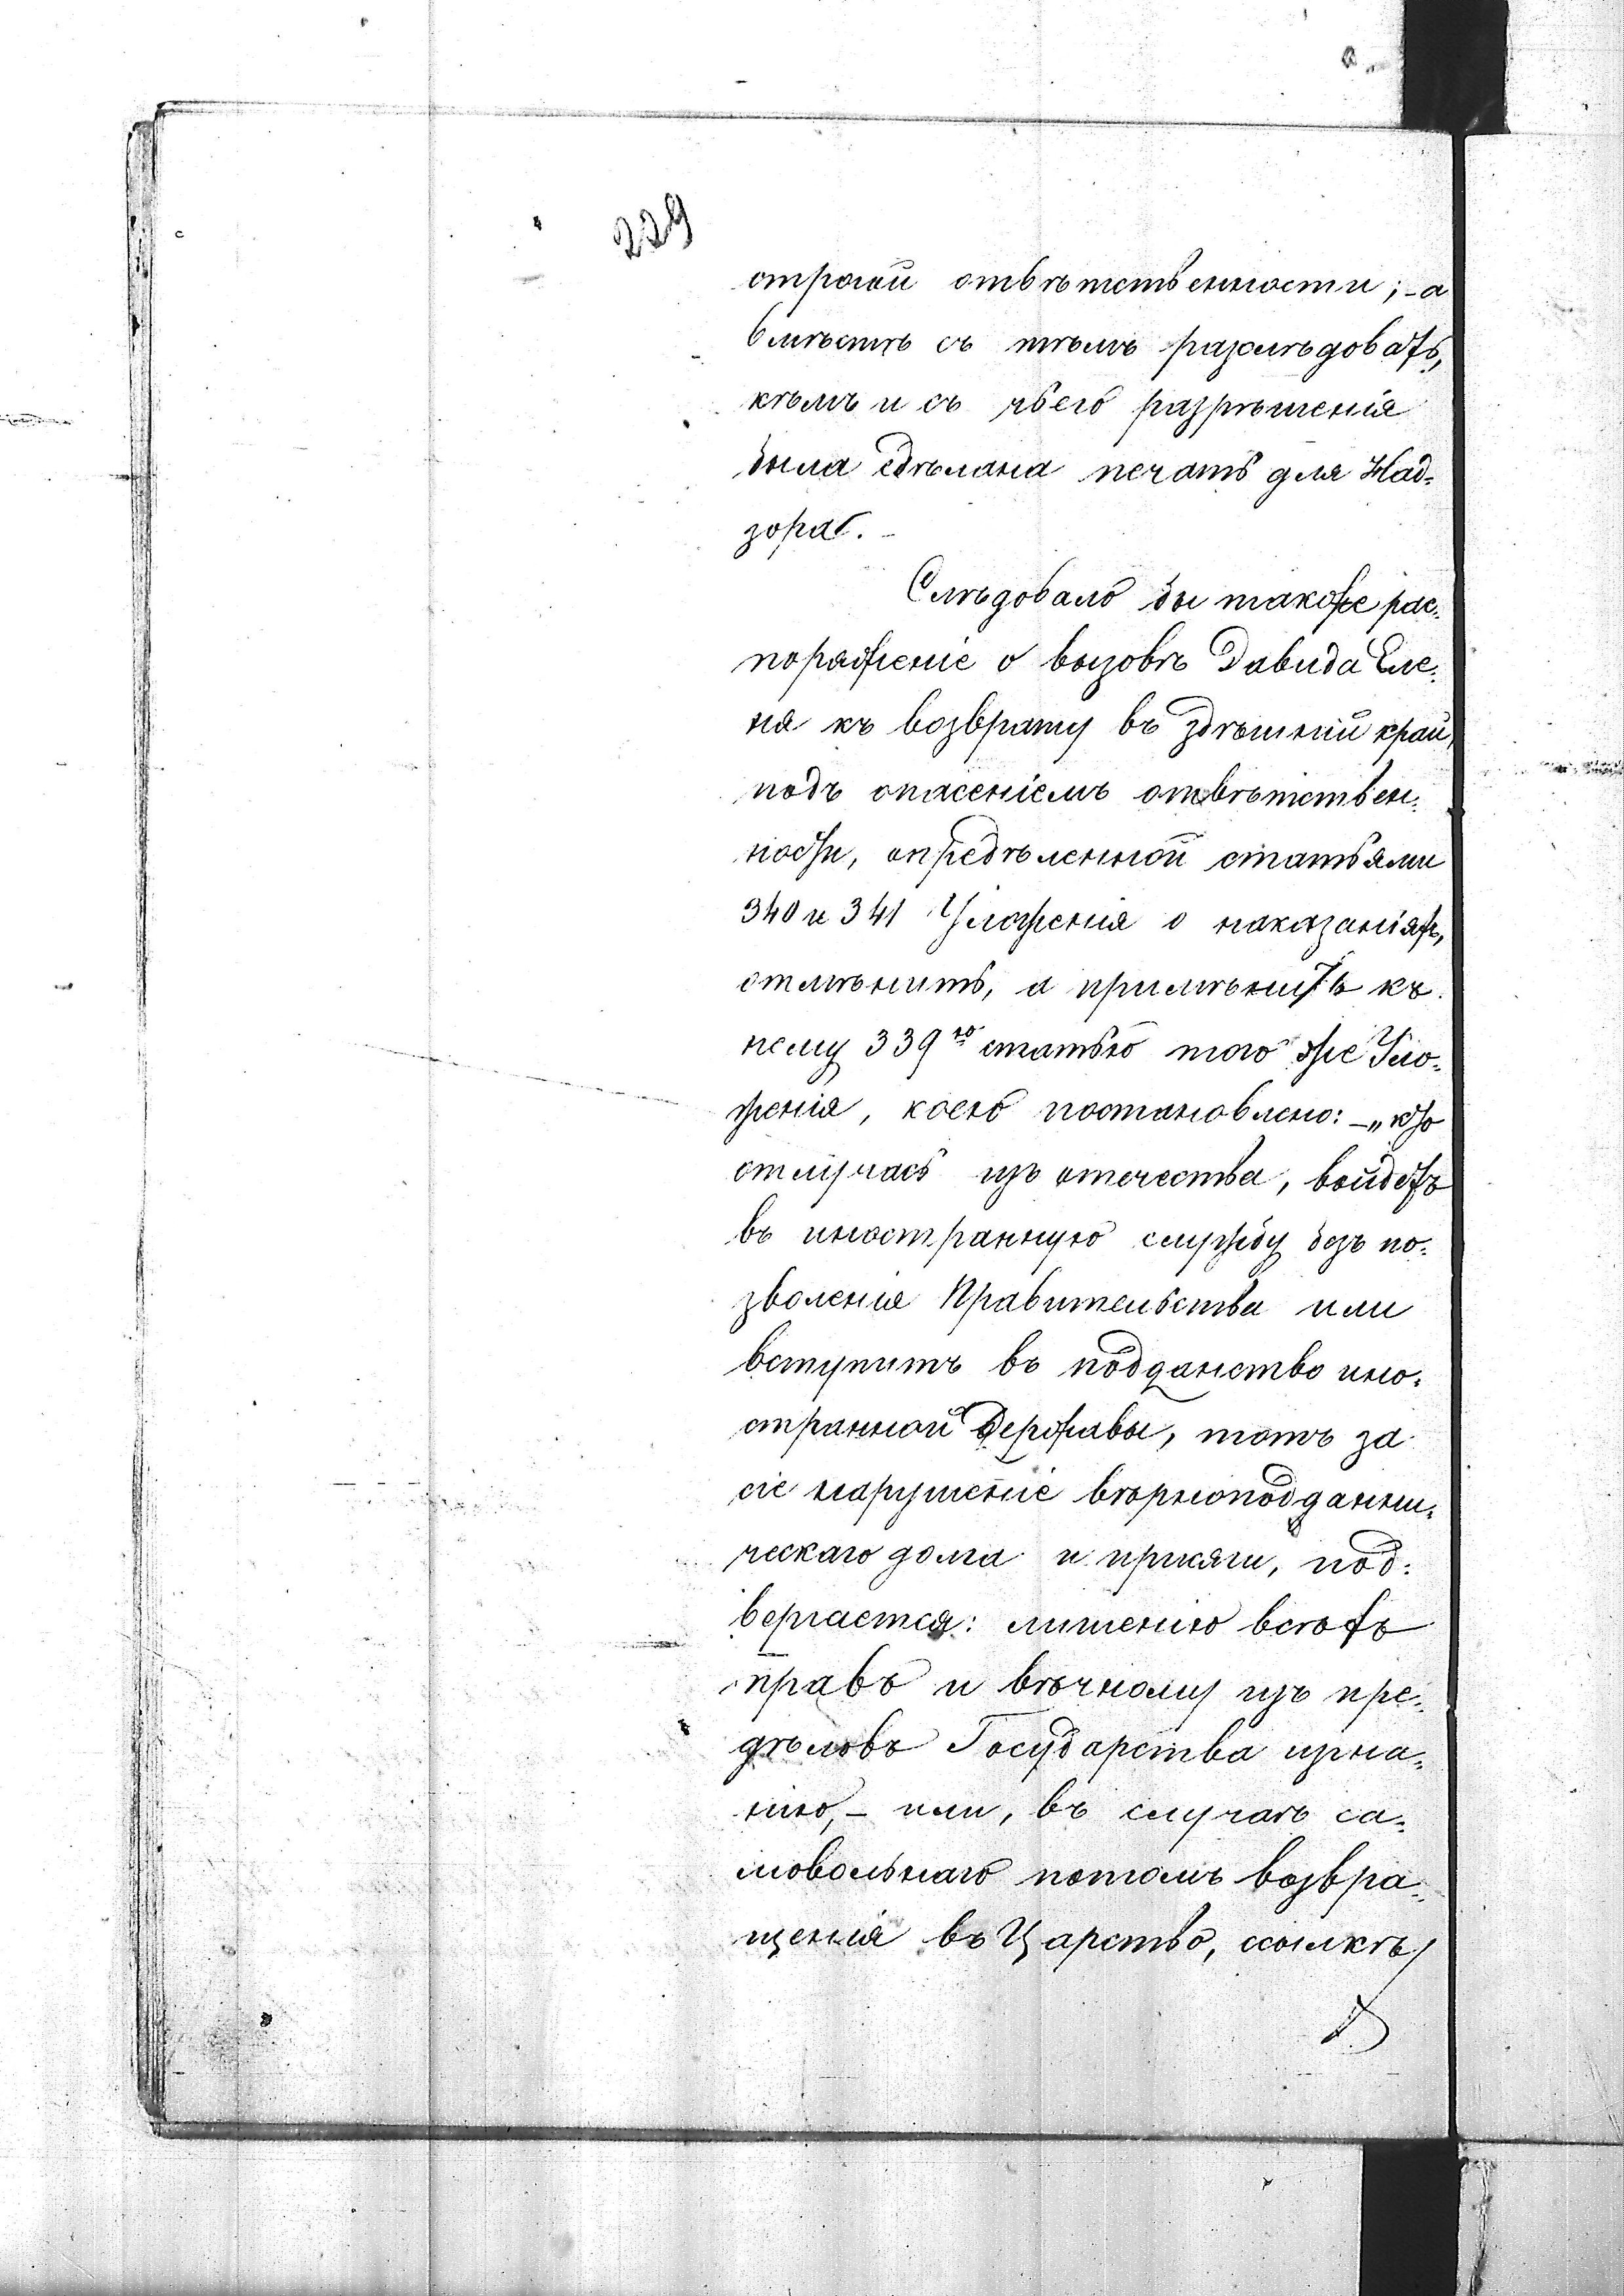 229
строгой отвѣтственности; - а
вмѣстѣ съ тѣмъ разслѣдовать,
кѣмъ и съ чьего разрѣшенія
была сдѣлана печать для Над-
зора. -
Слѣдовало бы также рас-
поряженіе о вызовѣ Давида Еле-
ня къ возврату въ здѣшній край,
подъ опасеніемъ отвѣтствен-
ности, опредѣленной статьями
340 и 341 Уложенія о наказаніяхъ,
отмѣнить, а примѣнить къ
нему 339ю статью того же Уло-
женія, коею постановлено: - „кто
отлучась изъ отечества, войдетъ
въ иностранную службу безъ по-
зволенія Правительства или
вступитъ въ подданство ино-
странной Державы, тотъ за
сіе нарушеніе вѣрноподданни-
ческаго долга и присяги, под-
вергается: лишенію всѣхъ
правъ и вѣчному изъ пре-
дѣловъ Государства изгна-
нію, - или, въ случаѣ са-
мовольнаго потомъ возвра-
щенія въ Царство, ссылкѣ